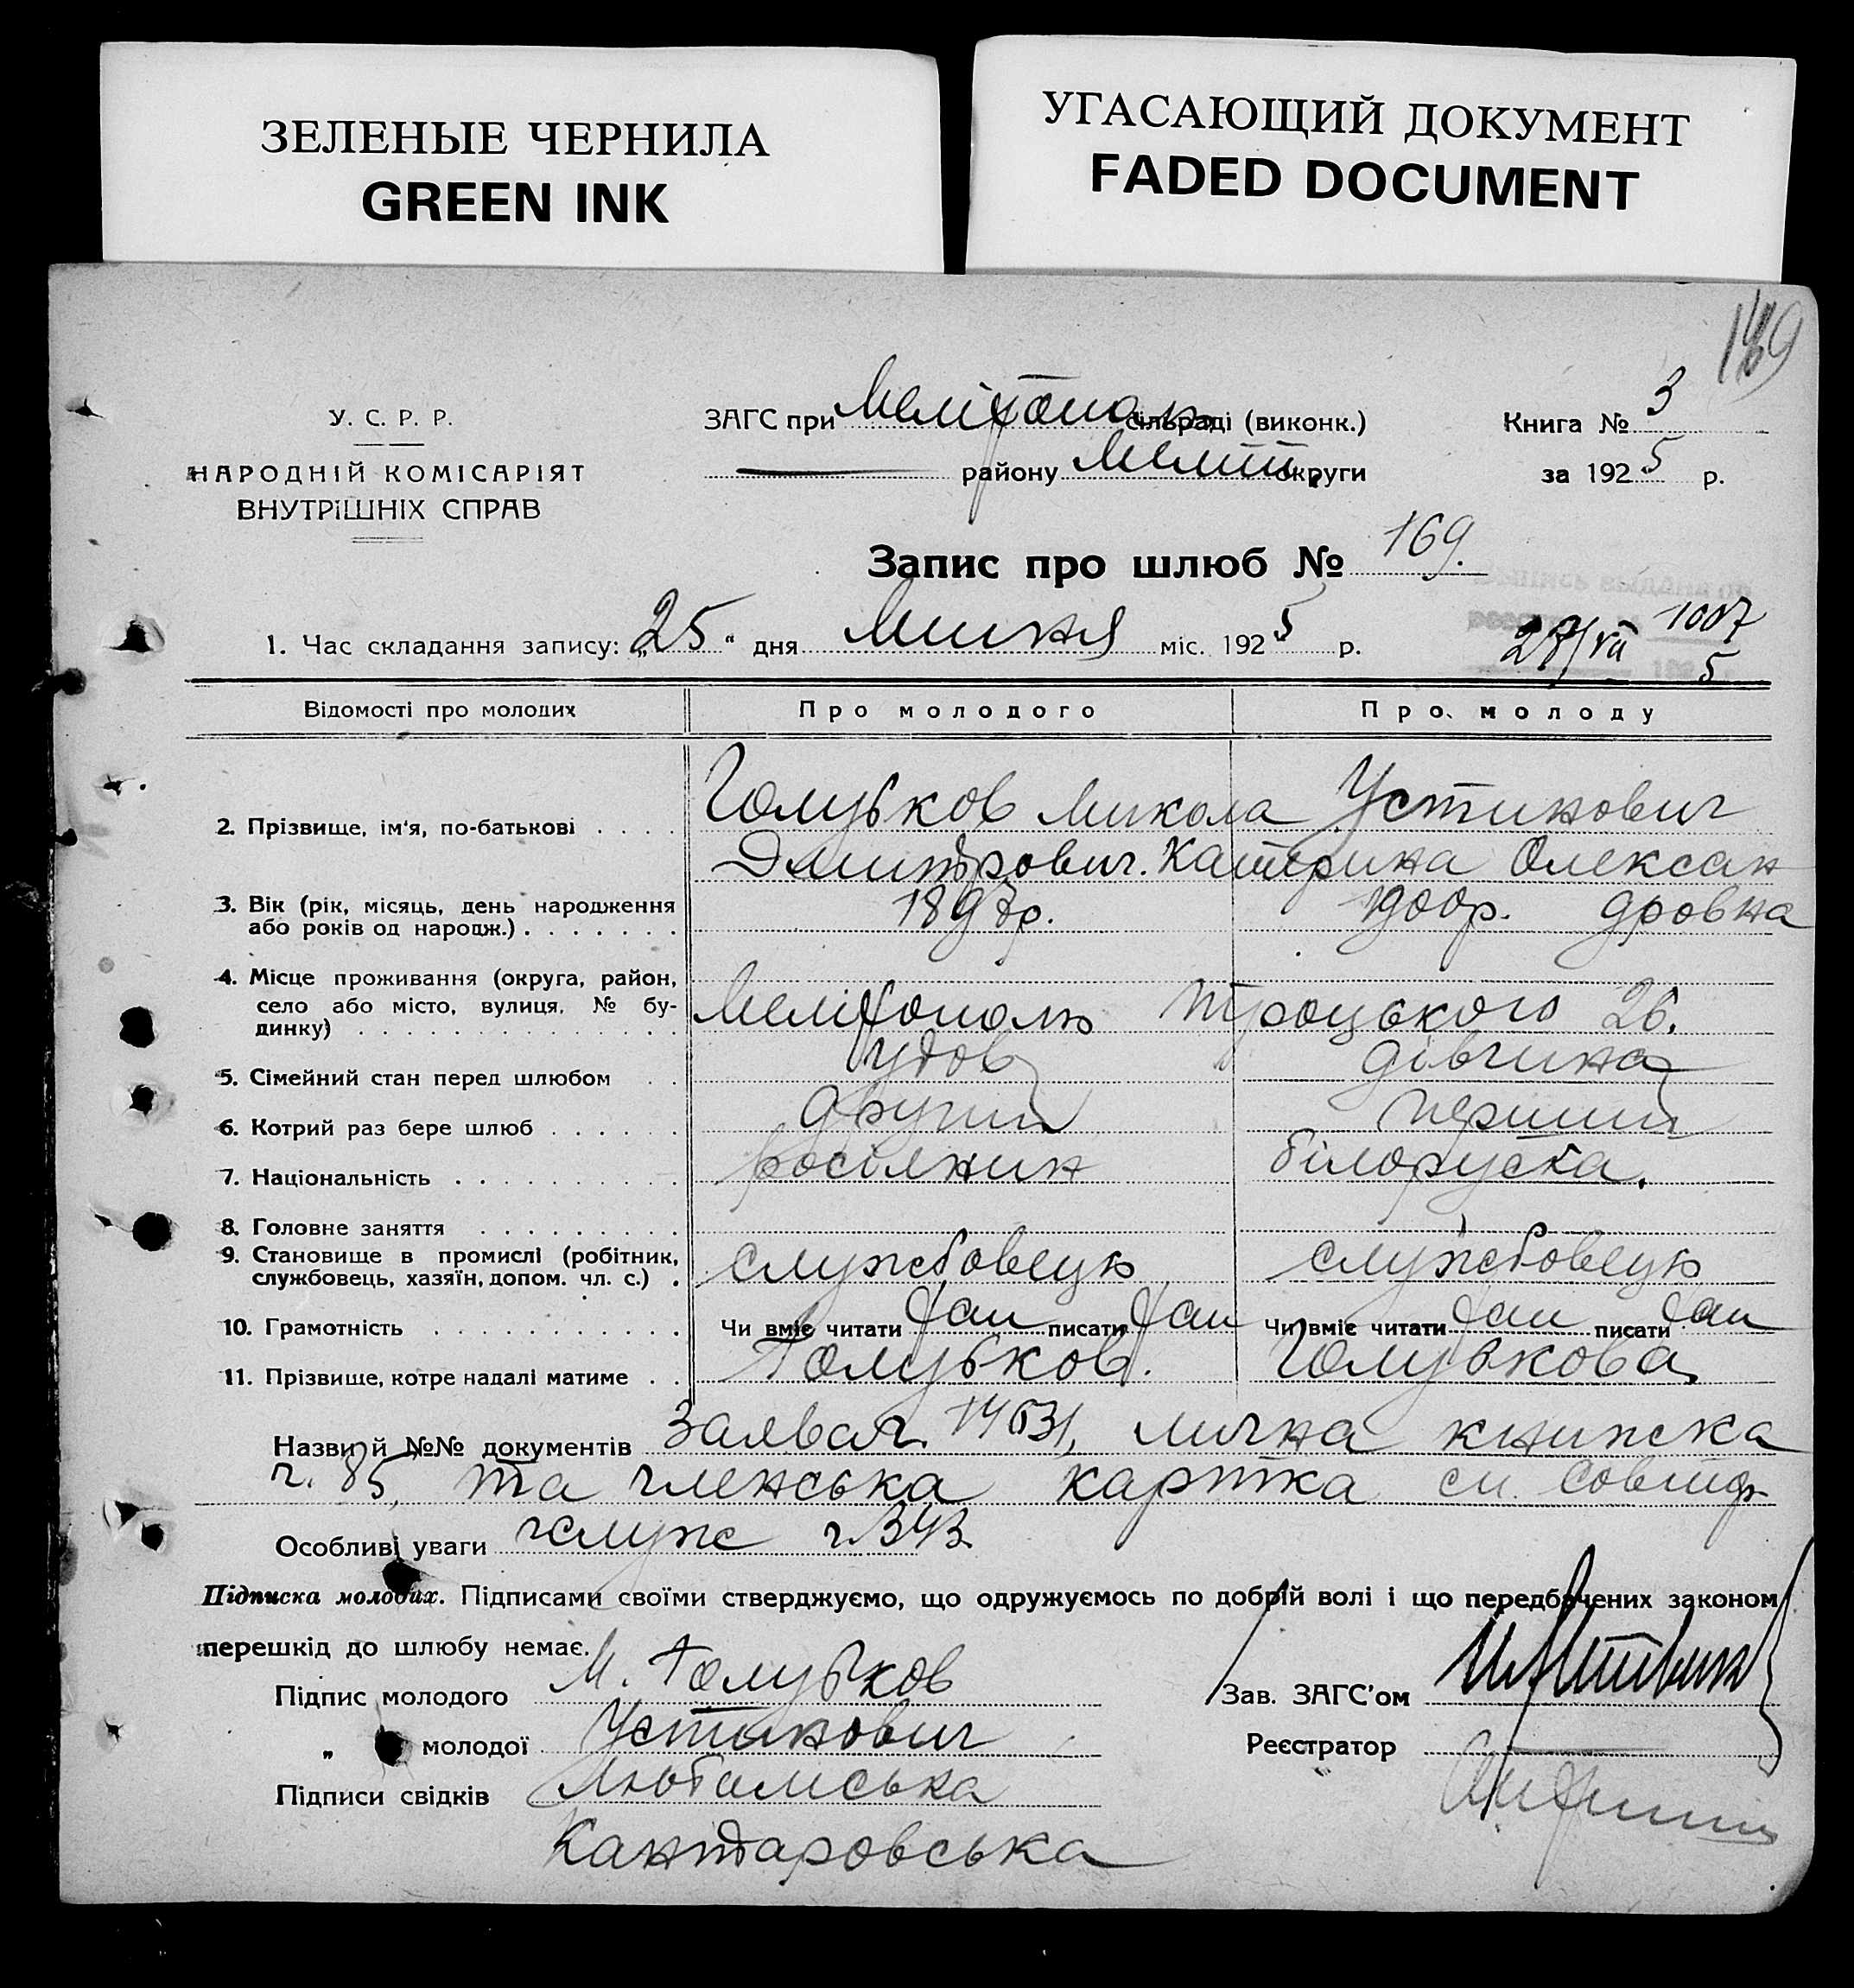 ЗЕЛЕНЫЕ ЧЕРНИЛА
GREEN INK
УГАСАЮЩИЙ ДОКУМЕНТ
FADED DOCUMENT
У. С. Р. Р.
НАРОДНІЙ КОМІСАРІЯТ
ВНУТРІШНІХ СПРАВ
ЗАГС при Мелітопольск сільраді (виконк.)
району Меліт. округи
Книга № 3
за 1925 р.
Запис про шлюб № 169.
1. Час складання запису: „25" дня Липня міс. 1925 р.
1007
28/VII 5
Відомості про молодих Про молодого Про молоду
2. Прізвище, ім'я, по-батькові . . . . Голубков Микола Устинович
Дмитрович. Катерина Олексан
3. Вік (рік, місяць, день народження 1897р. 1900р. дровна
або років од народж.) . . . . . . .
4. Місце проживання (округа, район,
село або місто, вулиця, № бу-
динку) Мелітополь Троцького 26.
5. Сімейний стан перед шлюбом . . удов дівчина
6. Котрий раз бере шлюб . . . . . . другий перший
7. Національність . . . . . . . . . . росіянин білоруска.
8. Головне заняття . . . . . . . . .
9. Становище в промислі (робітник,
службовець, хазяїн, допом. чл. с.) . службовець службовець
10. Грамотність . . . . . . . . . . . Чи вміє читати так писати так Чи вміє читати так писати так
11. Прізвище, котре надалі матиме . . Голубков. Голубкова
Назви й №№ документів Заява ч. лична книжка
ч. 85, та членська картка сп.
Особливі уваги служ ч. 343
Підписка молодих. Підписами своїми стверджуємо, що одружуємось по добрій волі і що передбачених законом
перешкід до шлюбу немає.
Підпис молодого М. Голубков
Зав. ЗАГС'ом
„ молодої Устинович
Реєстратор
Підписи свідків
Кантаровська